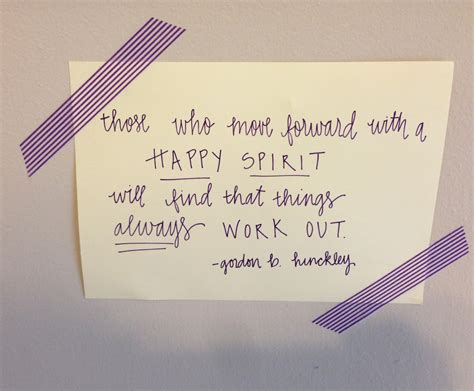 those who move forward with a
HAPPY SPIRIT
will find that things
always WORK OUT.
-gordon b. hinckley